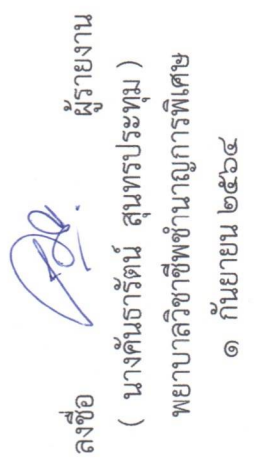 ลงชื่อ ผู้รายงาน
( นางคันธารัตน์ สุนทรประทุม )
พยาบาลวิชาชีพชำนาญการพิเศษ
๑ กันยายน ๒๕๖๔